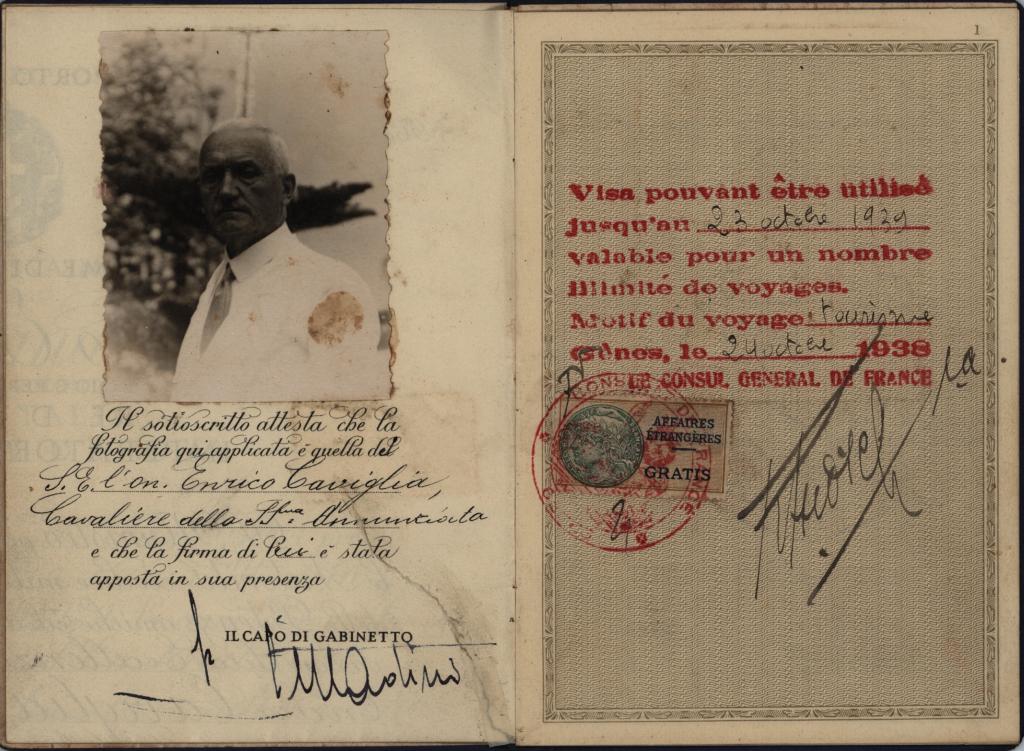 Il sottoscritto attesta che la
fotografia qui applicata è quella del
S. E. l'on. Enrico Caviglia,
Cavaliere della SS.ma Annunziata
e che la firma di lui è stata
apposta in sua presenza
IL CAPO DI GABINETTO
1
Visa pouvant être utilisé
jusqu'au 23 octobre 1939
valable pour un nombre
illimité de voyages.
Motif du voyage: tourisme
Gênes, le 24 octobre 1938
LE CONSUL GENERAL DE FRANCE
AFFAIRES
ÉTRANGÈRES
GRATIS